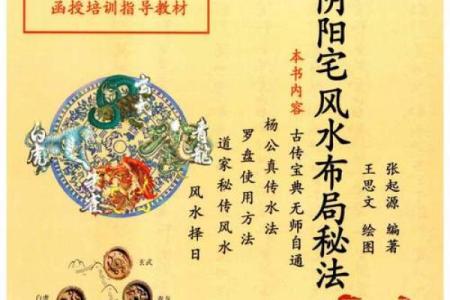 函授培训指导教材
阴阳宅风水布局秘法
张起源 编著
王思文 绘图
本书内容
古传宝典 无师自通
杨公真传水法
罗盘使用方法
道家秘传风水
风水择日
玄武
青龍
白虎
朱雀
玄武
白虎
青龙